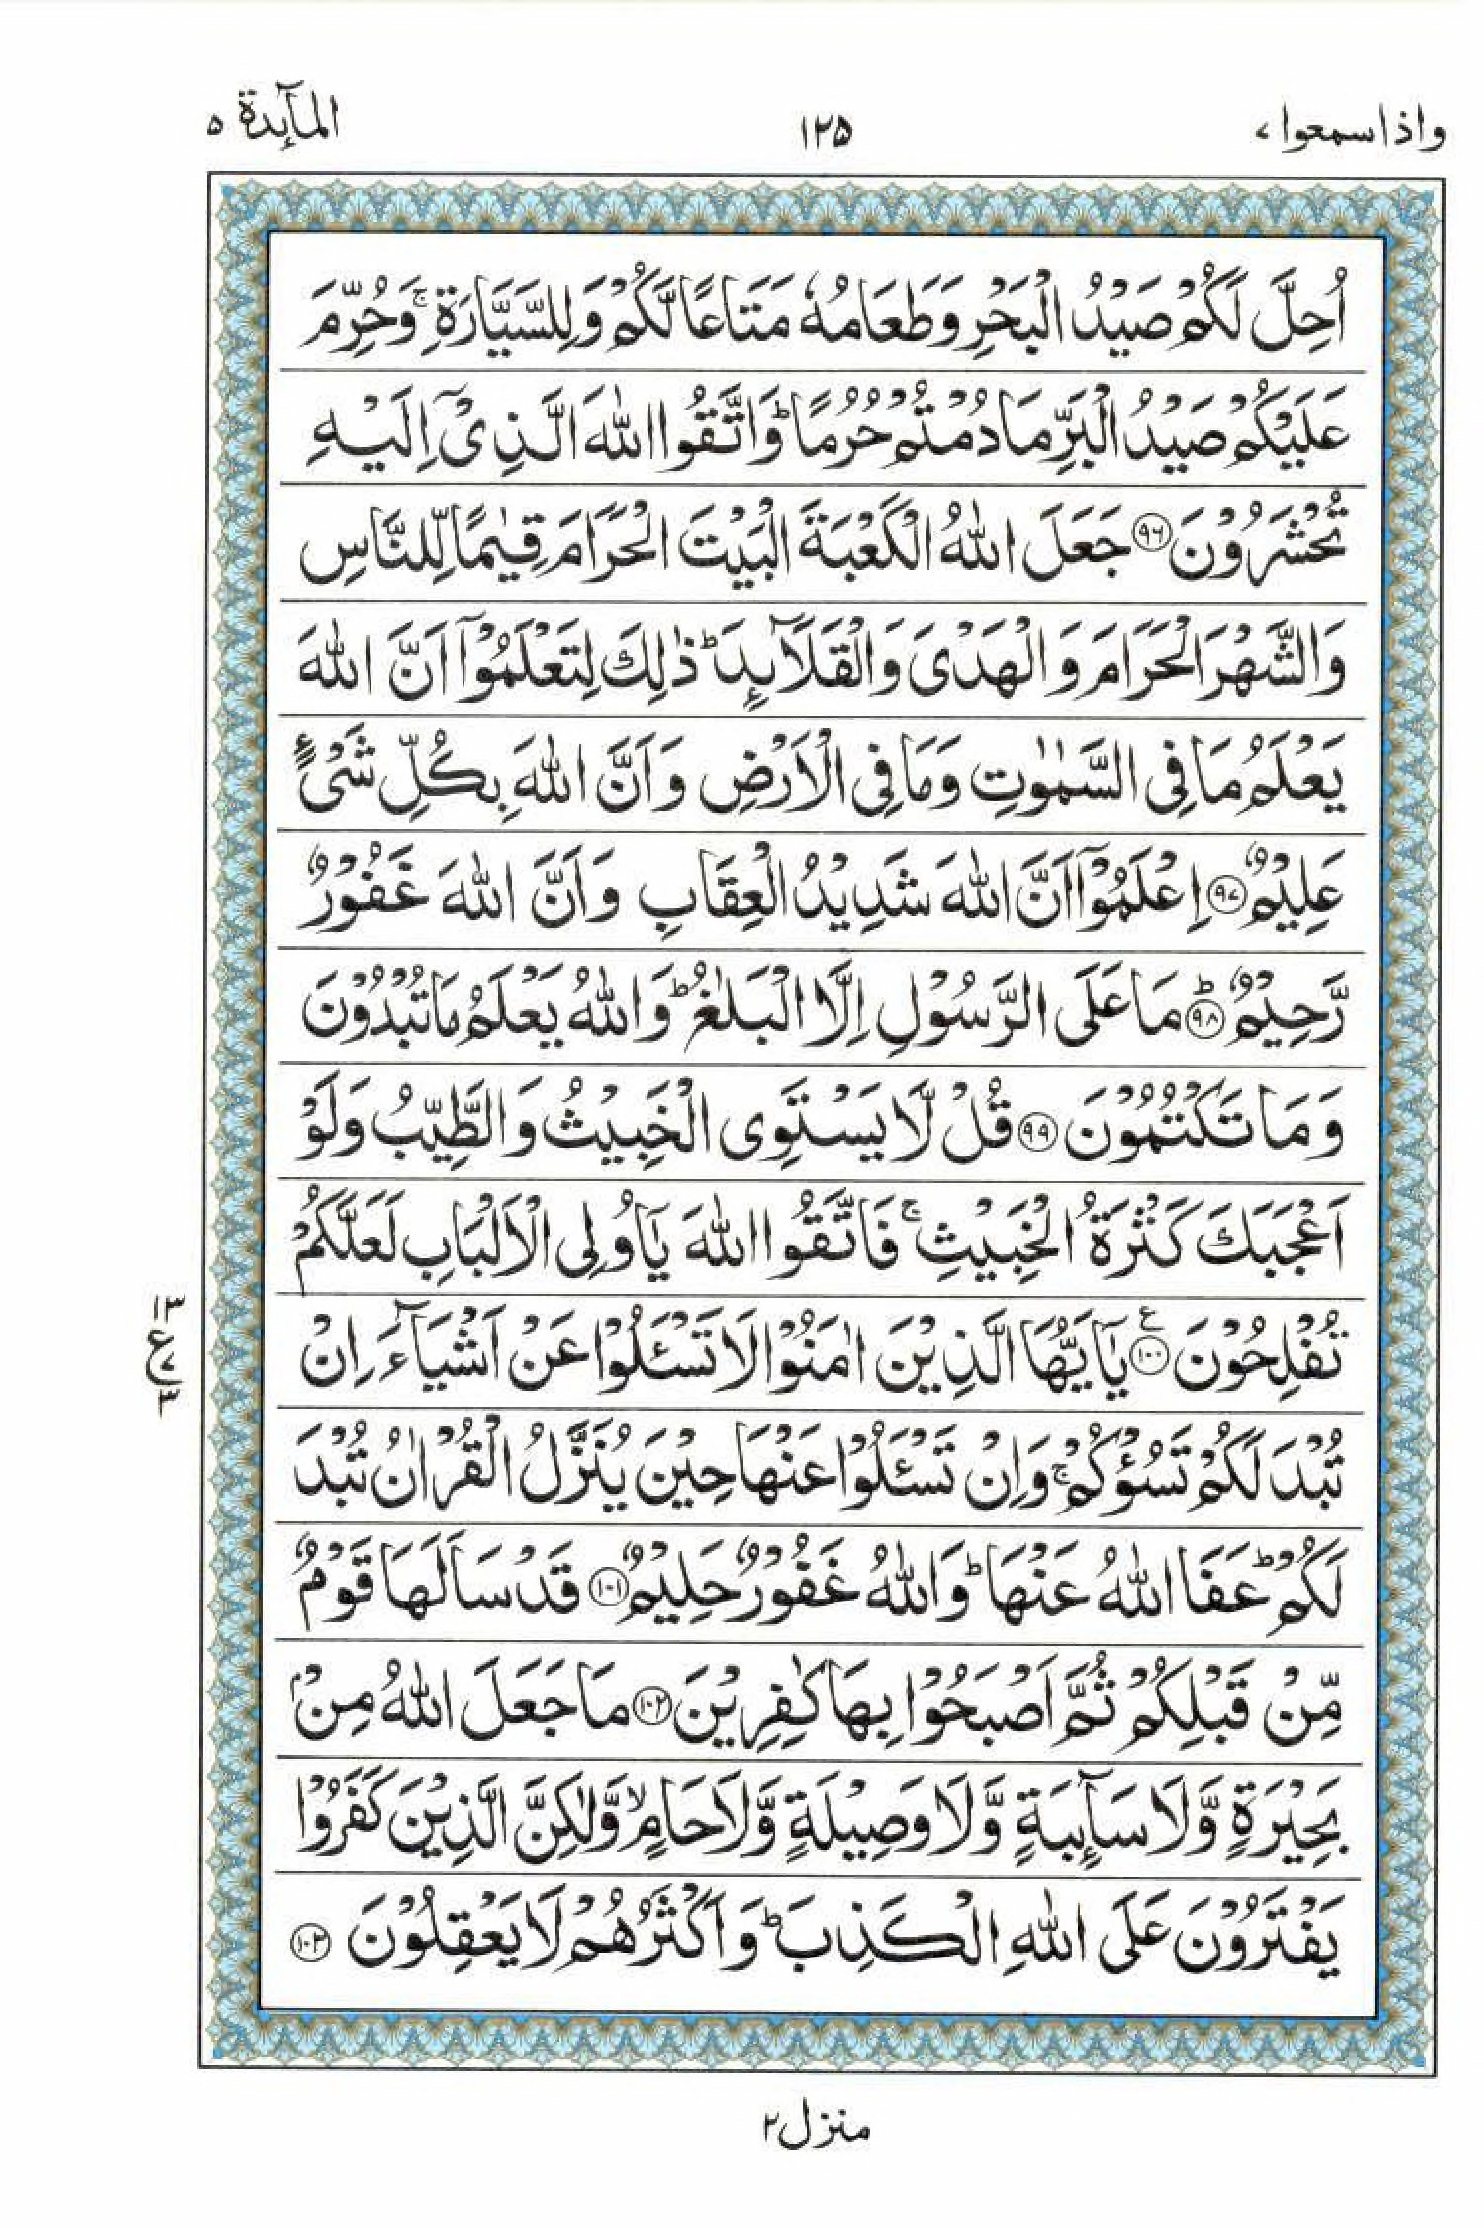 واذا سمعوا ٧
١٢٥
المآىِٕدة ٥
اُحِلَّ لَكُمْ صَيْدُ الْبَحْرِ وَطَعَامُهٗ مَتَاعًا لَّكُمْ وَلِلسَّيَّارَةِ ۚ وَحُرِّمَ
عَلَيْكُمْ صَيْدُ الْبَرِّ مَا دُمْتُمْ حُرُمًا ؕ وَاتَّقُوا اللّٰهَ الَّذِيْۤ اِلَيْهِ
تُحْشَرُوْنَ ﴿۹۶﴾ جَعَلَ اللّٰهُ الْكَعْبَةَ الْبَيْتَ الْحَرَامَ قِيٰمًا لِّلنَّاسِ
وَالشَّهْرَ الْحَرَامَ وَ الْهَدْىَ وَ الْقَلَآىِٕدَ ؕ ذٰلِكَ لِتَعْلَمُوْۤا اَنَّ اللّٰهَ
يَعْلَمُ مَا فِى السَّمٰوٰتِ وَمَا فِى الْاَرْضِ وَ اَنَّ اللّٰهَ بِكُلِّ شَىْءٍ
عَلِيْمٌ ﴿۹۷﴾ اِعْلَمُوْۤا اَنَّ اللّٰهَ شَدِيْدُ الْعِقَابِ وَ اَنَّ اللّٰهَ غَفُوْرٌ
رَّحِيْمٌ ؕ ﴿۹۸﴾ مَا عَلَى الرَّسُوْلِ اِلَّا الْبَلٰغُ ؕ وَاللّٰهُ يَعْلَمُ مَا تُبْدُوْنَ
وَ مَا تَكْتُمُوْنَ ﴿۹۹﴾ قُلْ لَّا يَسْتَوِى الْخَبِيْثُ وَ الطَّيِّبُ وَلَوْ
اَعْجَبَكَ كَثْرَةُ الْخَبِيْثِ ۚ فَاتَّقُوا اللّٰهَ يٰۤاُولِى الْاَلْبَابِ لَعَلَّكُمْ
تُفْلِحُوْنَ ﴿۱۰۰﴾ ع يٰۤاَيُّهَا الَّذِيْنَ اٰمَنُوْا لَا تَسْـَٔلُوْا عَنْ اَشْيَآءَ اِنْ
تُبْدَ لَكُمْ تَسُؤْكُمْ ۚ وَاِنْ تَسْـَٔلُوْا عَنْهَا حِيْنَ يُنَزَّلُ الْقُرْاٰنُ تُبْدَ
لَكُمْ ؕ عَفَا اللّٰهُ عَنْهَا ؕ وَاللّٰهُ غَفُوْرٌ حَلِيْمٌ ﴿۱۰۱﴾ قَدْ سَاَلَهَا قَوْمٌ
مِّنْ قَبْلِكُمْ ثُمَّ اَصْبَحُوْا بِهَا كٰفِرِيْنَ ﴿۱۰۲﴾ مَا جَعَلَ اللّٰهُ مِنْۢ
بَحِيْرَةٍ وَّلَا سَآىِٕبَةٍ وَّلَا وَصِيْلَةٍ وَّلَا حَامٍ ۙ وَّلٰكِنَّ الَّذِيْنَ كَفَرُوْا
يَفْتَرُوْنَ عَلَى اللّٰهِ الْكَذِبَ ؕ وَ اَكْثَرُهُمْ لَا يَعْقِلُوْنَ ﴿۱۰۳﴾
١٣
ع ٧
٣
منزل ٢